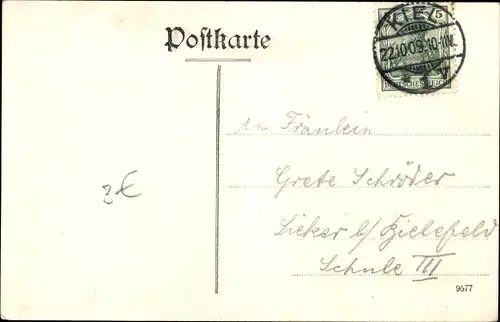 Postkarte
5
KIEL
22.10.09.10-11V.
DEUTSCHES REICH
An Fräulein
Grete Schröder
Sieker b/ Bielefeld
Schule III
3€
9577